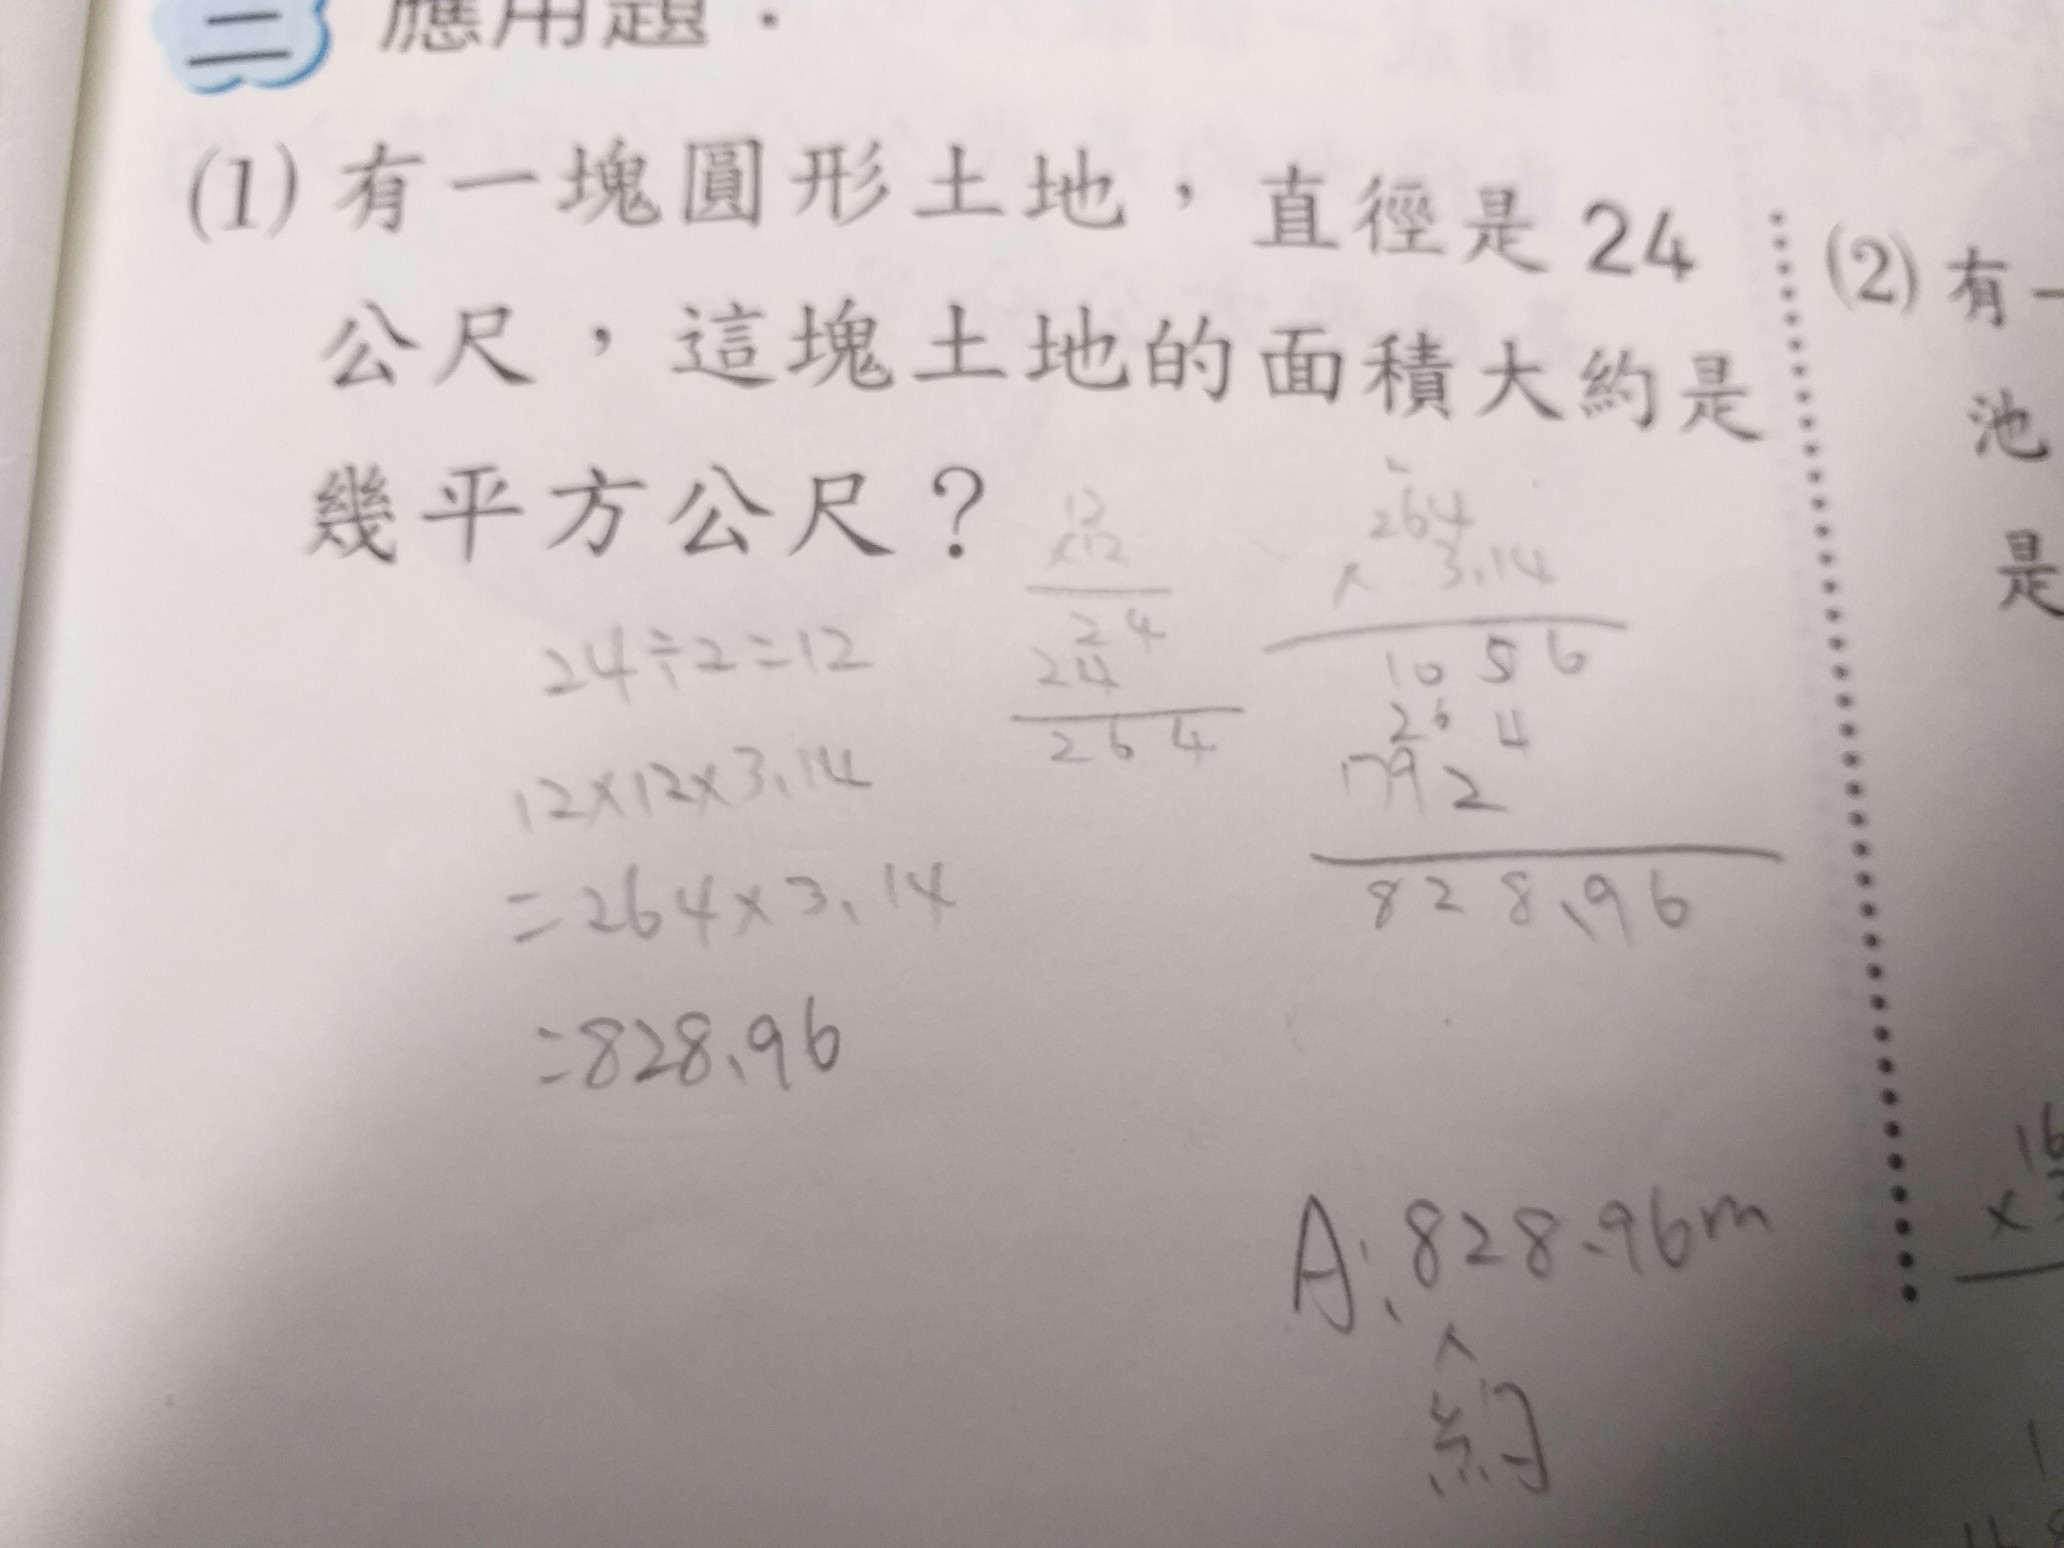 二 應用題：
(1) 有一塊圓形土地，直徑是24
公尺，這塊土地的面積大約是
幾平方公尺？
24÷2=12
12×12×3.14
=264×3.14
=828.96
12
×12
24
24
264
264
× 3.14
1056
264
1792
828.96
A:828.96m
約
(2) 有一
池
是
16
×